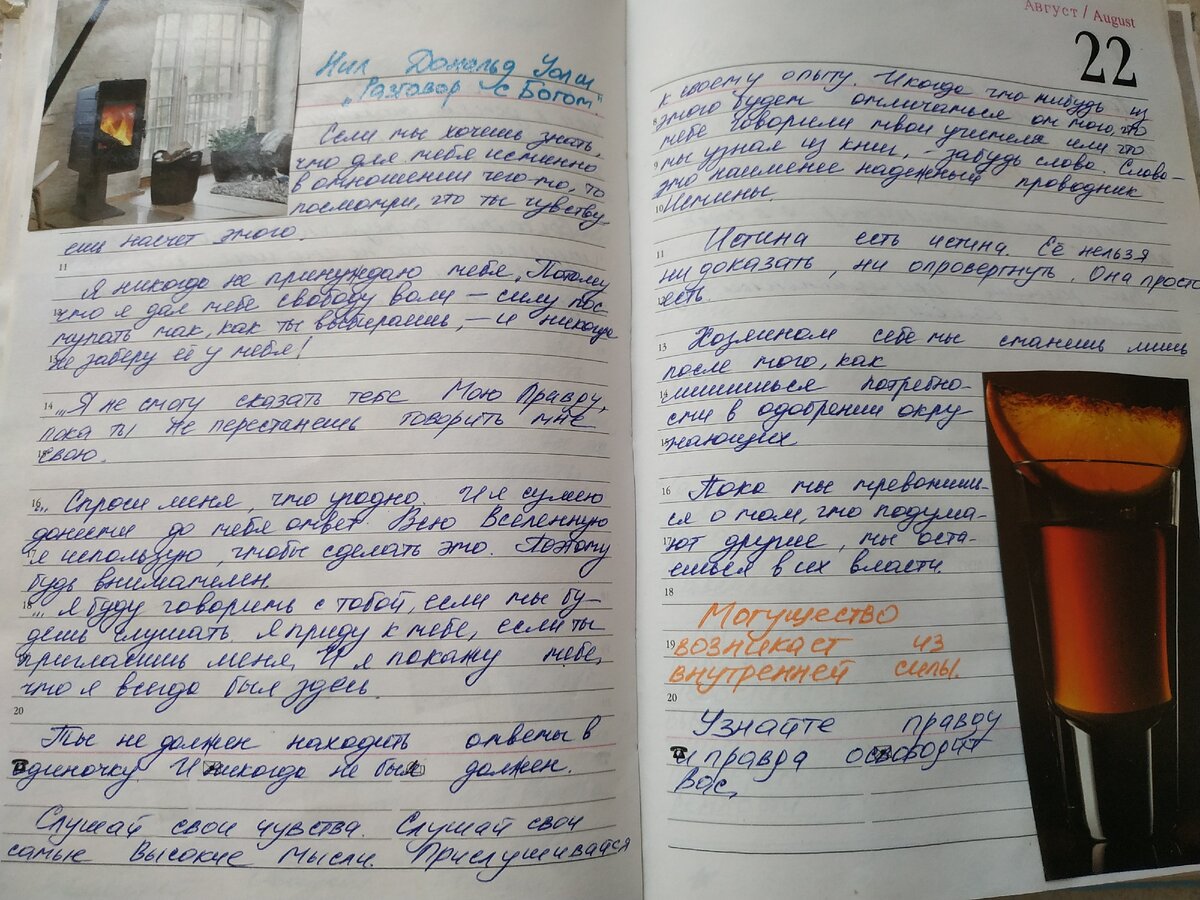 Нил Дональд Уолш
"Разговор с Богом"
Если ты хочешь знать,
что для тебя истинно
в отношении чего-то, то
посмотри, что ты чувству-
ешь насчет этого.
11
Я никогда не принуждаю тебя, Потому
что я дал тебе свободу воли – силу пос-
тупать так, как ты выбираешь, – и никогда
не заберу её у тебя!
14
... Я не смогу сказать тебе Мою Правду,
пока ты не перестанешь говорить мне
свою.
16
... Спроси меня, что угодно. И я сумею
донести до тебя ответ. Всю Вселенную
17
я использую, чтобы сделать это. Поэтому
будь внимателен
18
... я буду говорить с тобой, если ты бу-
дешь слушать. Я приду к тебе, если ты
пригласишь меня, И я покажу тебе,
что я всегда был здесь.
20
Ты не должен находить ответы в
одиночку. И никогда не был должен.
Слушай свои чувства. Слушай свои
самые Высокие Мысли. Прислушивайся
Август / August
22
к своему опыту. И когда что-нибудь из
8
этого будет отличаться от того, что
тебе говорили твои учителя или что
9
ты узнал из книг, – забудь слова. Слова –
это наименее надежный проводник
10
Истины.
11
Истина есть истина. Её нельзя
ни доказать, ни опровергнуть. Она просто
есть.
13
Хозяином себе ты станешь лишь
после того, как
14
лишишься потребно-
сти в одобрении окру-
15
жающих.
16
Пока ты тревожишь-
ся о том, что подума-
17
ют другие, ты оста-
ешься в их власти.
18
Могущество
19
возникает из
внутренней силы.
20
Узнайте правду
и правда освободит
Вас,